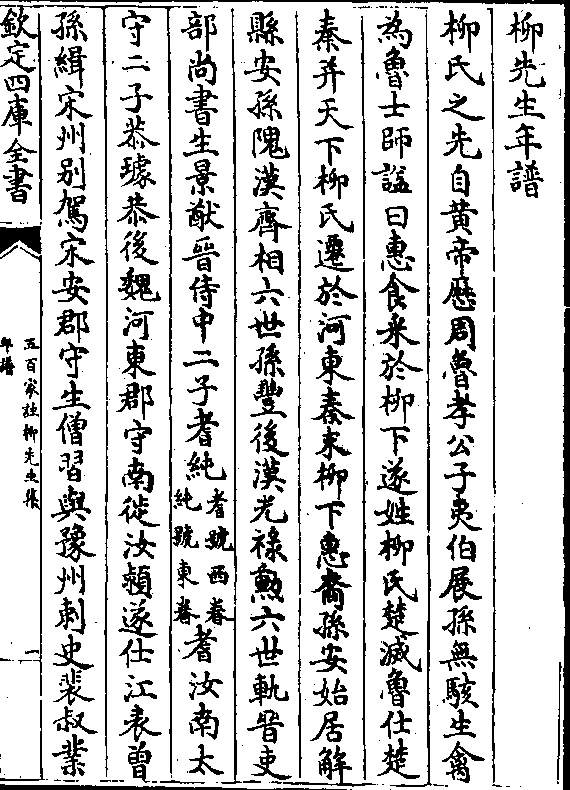 柳先生年譜
柳氏之先自黄帝歷周魯孝公子夷伯展孫無駭生禽
為魯士師諡曰惠食采於柳下遂姓柳氏楚滅魯仕楚
秦并天下柳氏遷於河東秦末柳下惠裔孫安始居解
縣安孫隗漢齊相六世孫豐後漢光祿勲六世軌晉吏
部尚書生景猷晉侍中二子耆純耆號西眷純號東眷耆汝南太
守二子恭璩恭後魏河東郡守南徙汝潁遂仕江表曾
孫緝宋州别駕宋安郡守生僧習與豫州刺史裴叔業
欽定四庫全書
五百家註柳先生集
年譜
一